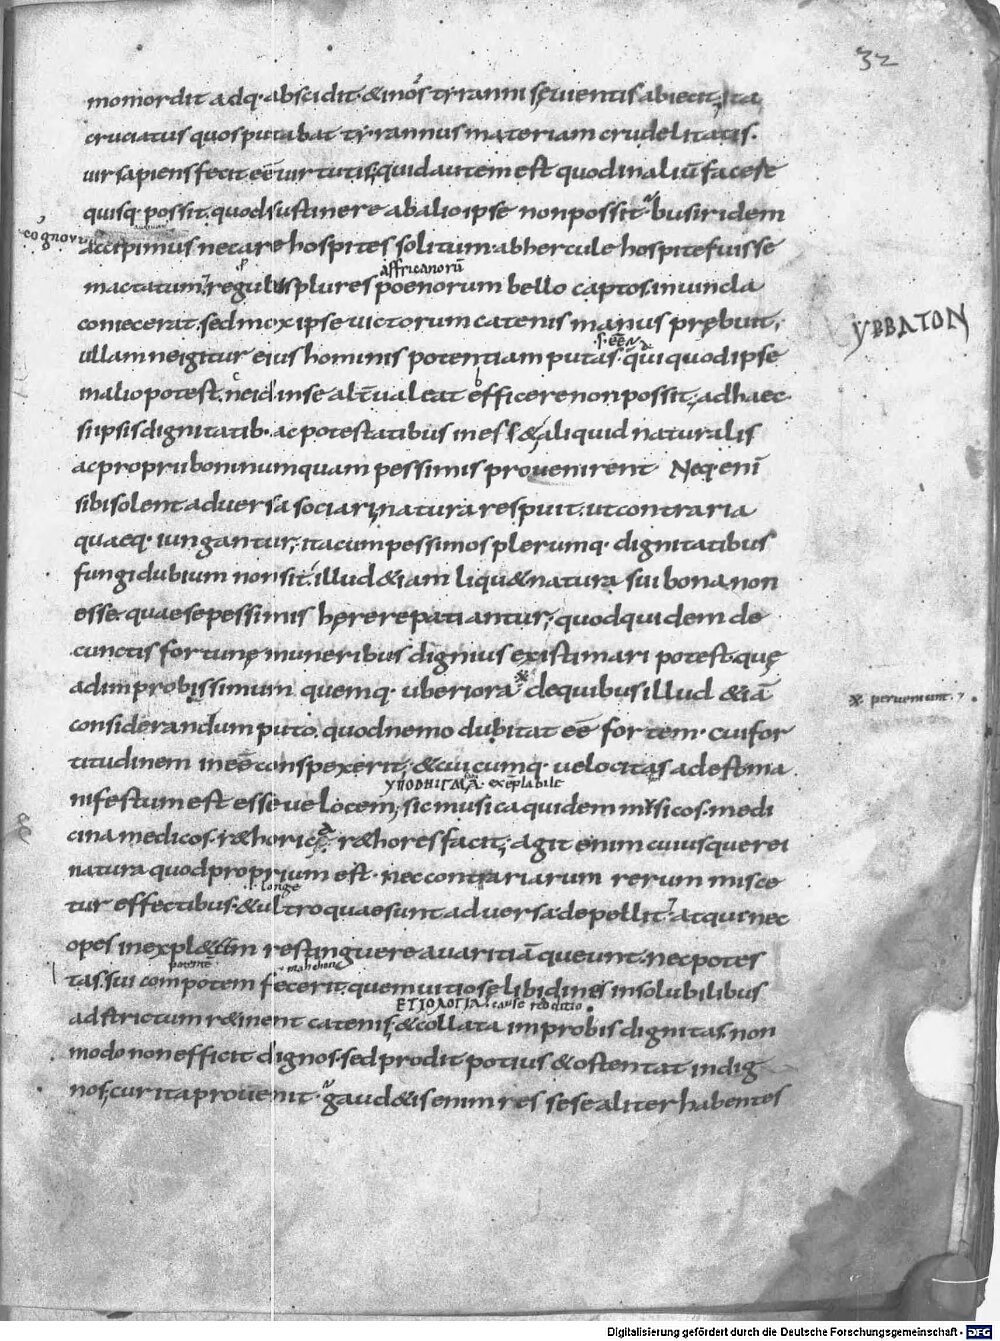 32
momordit adq· abscidit· & in os tyranni sęuientis abiecit; ita
cruciatus quos putabat tyrannus materiam crudelitatis·
uir sapiens fecit eē uirtutis; quid autem est quod in aliū facere
quisq· possit· quod sustinere ab alio ipse non possit; busiridem
cognovi
accipimus necare hospites solitum ab hercule hospite fuisse
affricanorū
mactatum; regulus plures poenorum bello captos in uincla
coniecerat· sed mox ipse uictorum catenis manus prębuit;
YBBATON
ullam ne igitur eius hominis potentiam putas· qui quod ipse
in alio potest· ne id in se alt̄ ualeat efficere non possit; ad haec
si ipsis dignitatib· ac potestatibus iness& aliquid naturalis
ac proprii boni numquam pessimis prouenirent· Neq· enī
sibi solent aduersa sociari; natura respuit· ut contraria
quaeq· iungantur; ita cum pessimos plerumq· dignitatibus
fungi dubium non sit; illud &iam liqu& natura sui bona non
esse· quae se pessimis hęrere patiantur; quod quidem de
cunctis fortunę muneribus dignius existimari potest· quę
ad improbissimum quemq· uberiora de quibus illud &iā
perueniunt·
considerandum puto· quod nemo dubitat eē fortem· cui for
titudinem inēē conspexerit; & cuicumq· uelocitas adest ma
exēplabile
nifestum est esse uelocem; sic musica quidem musicos· medi
cina medicos· r&horica r&hores facit; agit enim cuiusque rei
natura quod proprium est· nec contrariarum rerum misce
longe
tur effectibus· & ultro quae sunt aduersa depellit; atqui nec
opes inexpl&am restinguere auaritiā queunt· nec potes
tas· sui compotem fecerit· quem uitiosę libidines insolubilibus
ETIOLOGIA· cause redditio·
adstrictum r&inent catenis; & collata improbis dignitas· non
modo non efficit dignos· sed prodit potius & ostentat indig
nos; cur ita prouenit· gaud&is enim res sese aliter habentes
Digitalisierung gefördert durch die Deutsche Forschungsgemeinschaft - DFG